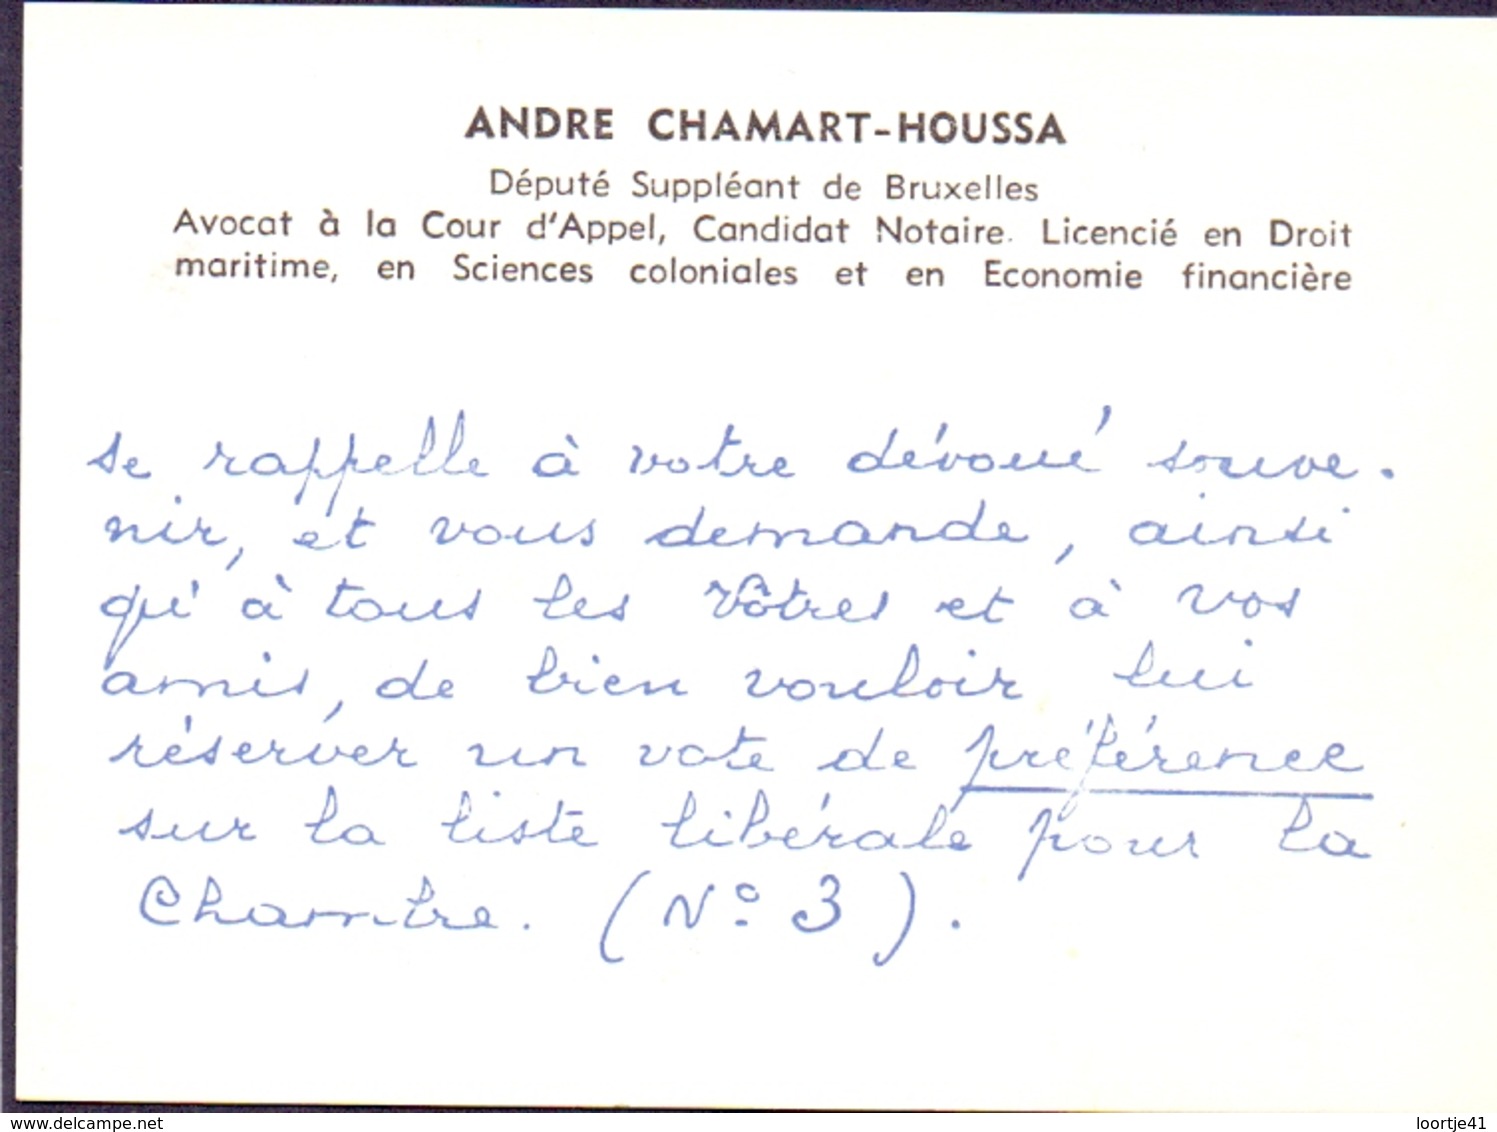 ANDRE CHAMART-HOUSSA
Député Suppléant de Bruxelles
Avocat à la Cour d'Appel, Candidat Notaire. Licencié en Droit
maritime, en Sciences coloniales et en Economie financière
se rappelle à votre dévoué souve-
nir, et vous demande, ainsi
qu'à tous les Vôtres et à vos
amis, de bien vouloir lui
réserver un vote de préférence
sur la liste libérale pour la
Chambre. (N° 3).
www.delcampe.net
loortje41